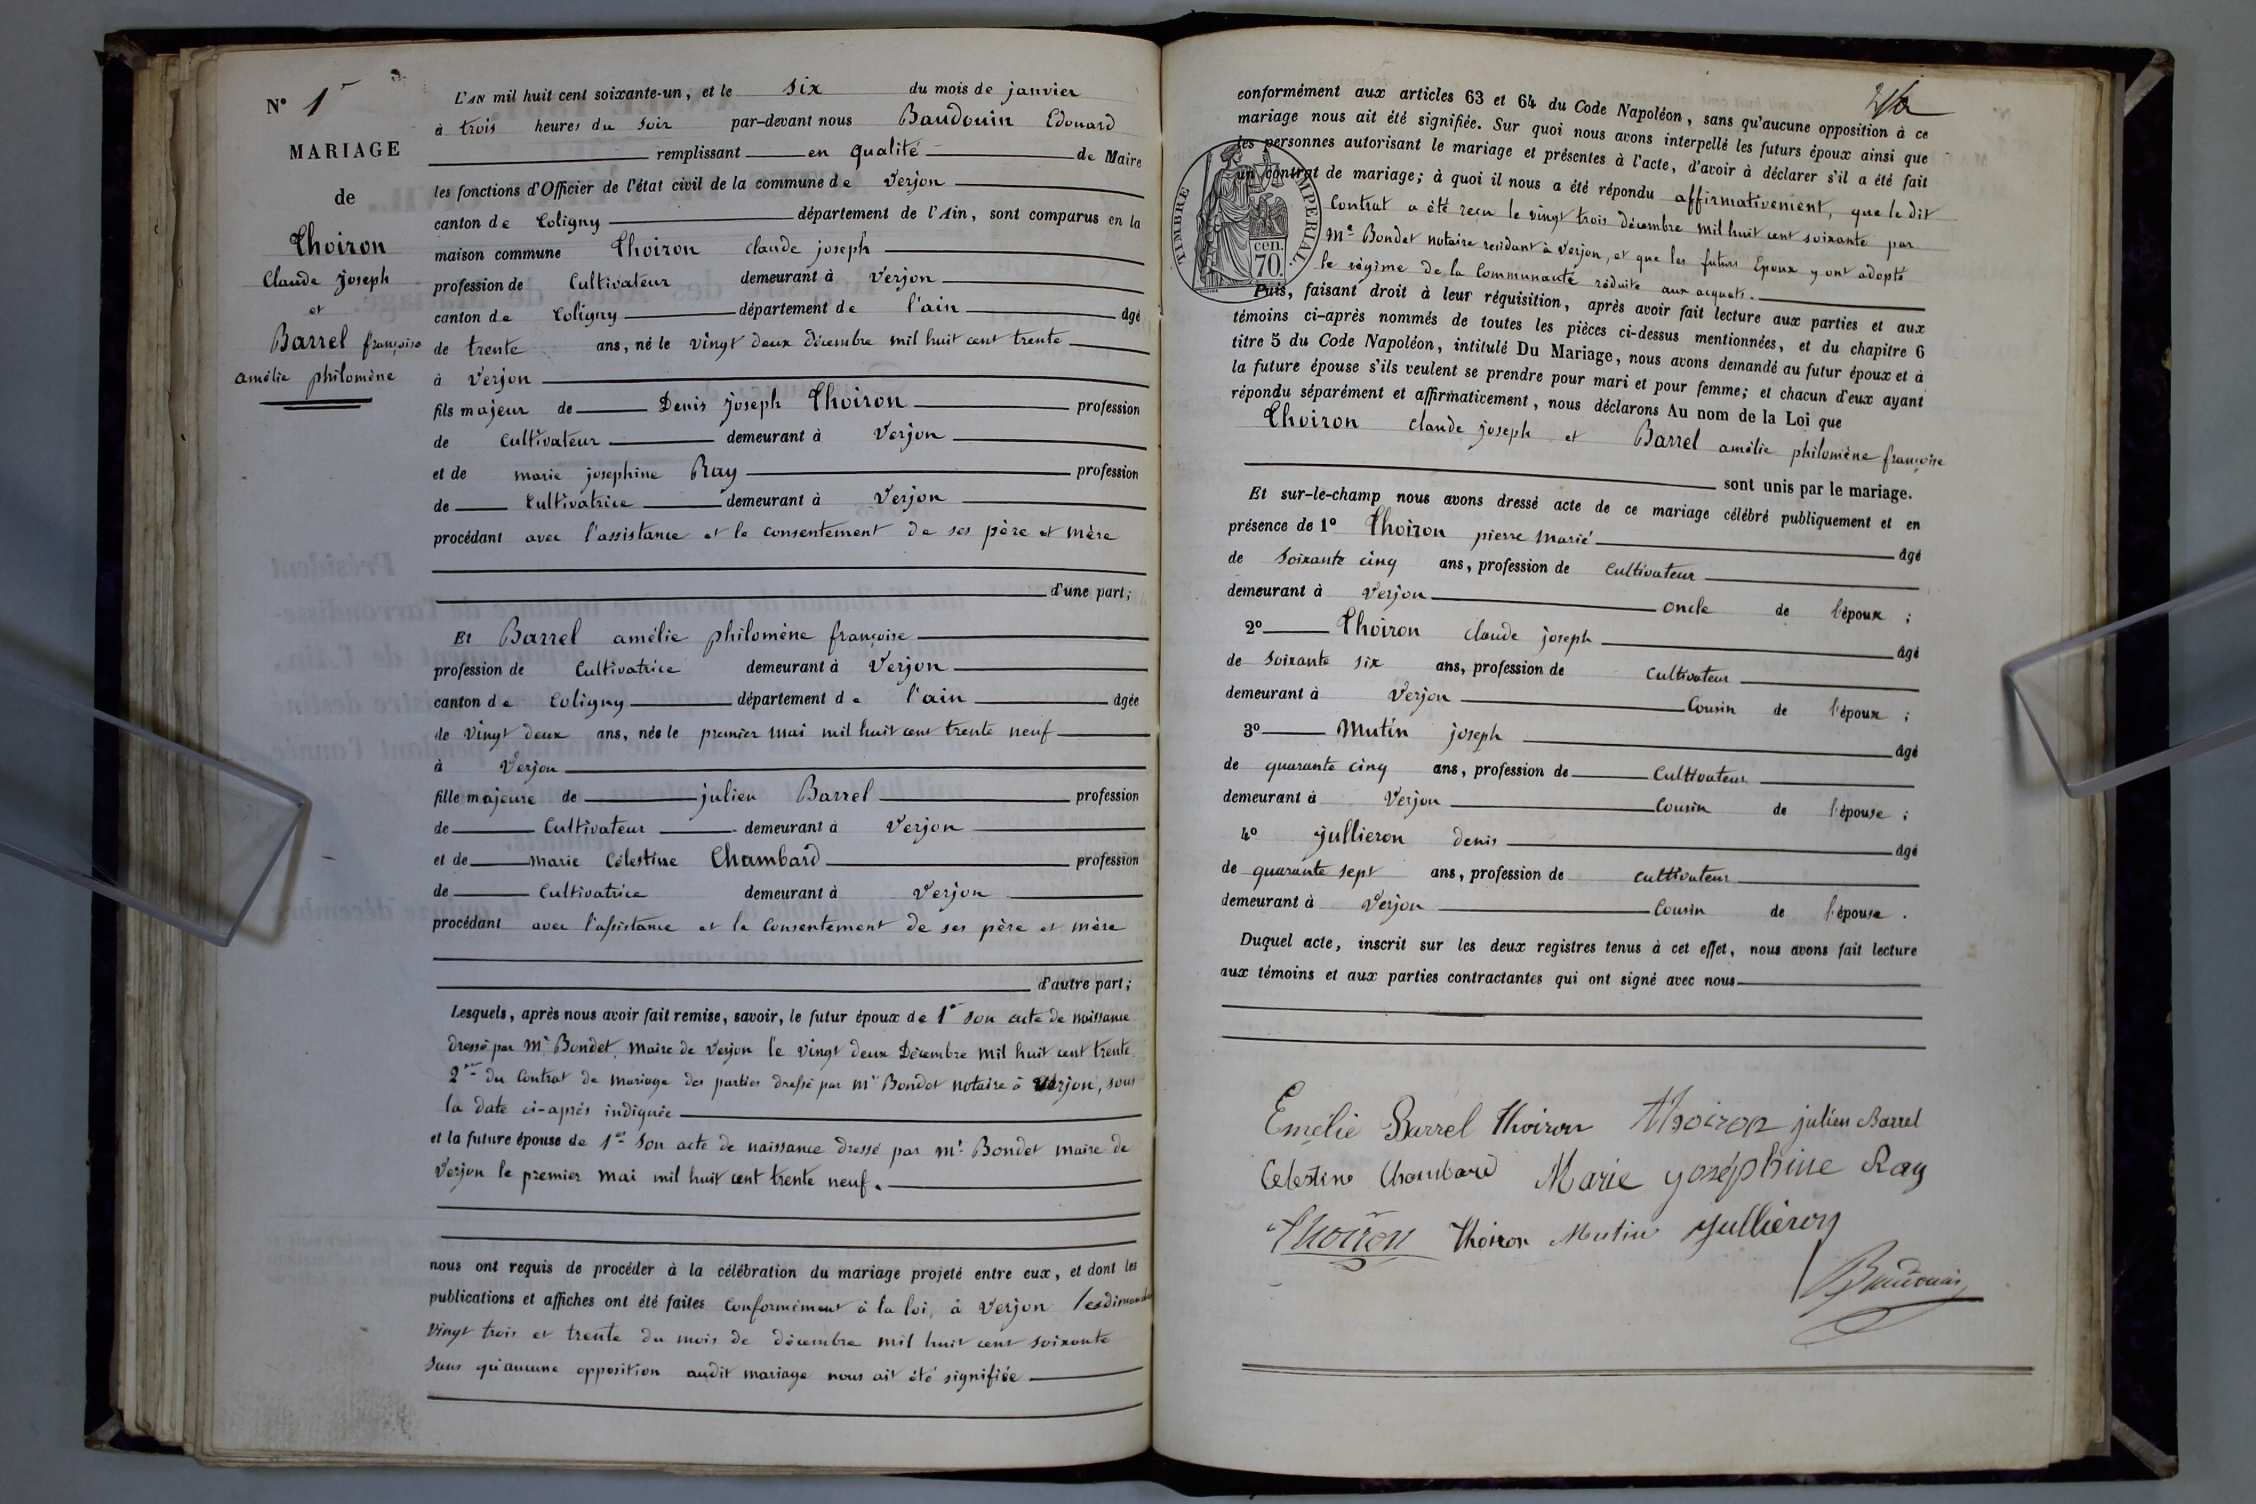 N° 1er
MARIAGE
de
Thoiron
Claude joseph
et
Barrel françoise
amélie philomène
L'AN mil huit cent soixante-un, et le six du mois de janvier
à trois heures du soir par-devant nous Baudouin Edouard
remplissant en qualité de Maire
les fonctions d'Officier de l'état civil de la commune de Verjon
canton de Coligny département de l'Ain, sont comparus en la
maison commune Thoiron claude joseph
profession de Cultivateur demeurant à Verjon
canton de Coligny département de l'ain âgé
de trente ans, né le vingt deux décembre mil huit cent trente
à Verjon
fils majeur de Denis joseph Thoiron profession
de Cultivateur demeurant à Verjon
et de marie josephine Ray profession
de Cultivatrice demeurant à Verjon
procédant avec l'assistance et le consentement de ses père et mère
d'une part;
Et Barrel amélie philomène françoise
profession de Cultivatrice demeurant à Verjon
canton de Coligny département de l'ain âgée
de vingt deux ans, née le premier mai mil huit cent trente neuf
à Verjon
fille majeure de julien Barrel profession
de Cultivateur demeurant à Verjon
et de marie Célestine Chambard profession
de Cultivatrice demeurant à Verjon
procédant avec l'assistance et le Consentement de ses père et mère
d'autre part;
Lesquels, après nous avoir fait remise, savoir, le futur époux de 1er son acte de naissance
dressé par Mr Bondet, maire de Verjon le vingt deux Décembre mil huit cent trente
2me du Contrat de mariage des parties dressé par Mr Bondet notaire à Verjon, sous
la date ci-après indiquée
et la future épouse de 1er son acte de naissance dressé par Mr Bondet maire de
Verjon le premier mai mil huit cent trente neuf.
nous ont requis de procéder à la célébration du mariage projeté entre eux, et dont les
publications et affiches ont été faites Conformément à la loi, à Verjon les dimanches
vingt trois et trente du mois de décembre mil huit cent soixante
sans qu'aucune opposition audit mariage nous ait été signifiée
conformément aux articles 63 et 64 du Code Napoléon, sans qu'aucune opposition à ce
mariage nous ait été signifiée. Sur quoi nous avons interpellé les futurs époux ainsi que
les personnes autorisant le mariage et présentes à l'acte, d'avoir à déclarer s'il a été fait
un contrat de mariage; à quoi il nous a été répondu affirmativement, que le dit
Contrat a été reçu le vingt trois décembre mil huit cent soixante par
Me Bondet notaire résidant à Verjon, et que les futurs Epoux y ont adopté
le régime de la Communauté réduite aux acquets.
TIMBRE IMPERIAL
cen.
70.
Puis, faisant droit à leur réquisition, après avoir fait lecture aux parties et aux
témoins ci-après nommés de toutes les pièces ci-dessus mentionnées, et du chapitre 6
titre 5 du Code Napoléon, intitulé Du Mariage, nous avons demandé au futur époux et à
la future épouse s'ils veulent se prendre pour mari et pour femme; et chacun d'eux ayant
répondu séparément et affirmativement, nous déclarons Au nom de la Loi que
Thoiron claude joseph et Barrel amélie philomène françoise
sont unis par le mariage.
Et sur-le-champ nous avons dressé acte de ce mariage célébré publiquement et en
présence de 1° Thoiron pierre Marié âgé
de Soixante cinq ans, profession de Cultivateur
demeurant à Verjon oncle de l'époux ;
2° Thoiron claude joseph âgé
de Soixante six ans, profession de Cultivateur
demeurant à Verjon Cousin de l'époux ;
3° Mutin joseph âgé
de quarante cinq ans, profession de Cultivateur
demeurant à Verjon Cousin de l'épouse ;
4° jullieron denis âgé
de quarante sept ans, profession de cultivateur
demeurant à Verjon Cousin de l'épouse .
Duquel acte, inscrit sur les deux registres tenus à cet effet, nous avons fait lecture
aux témoins et aux parties contractantes qui ont signé avec nous
Emélie Barrel Thoiron Thoiron julien Barrel
Celestine Chambard Marie joséphine Ray
Thoiron Thoiron Mutin Jullieron
Baudouin